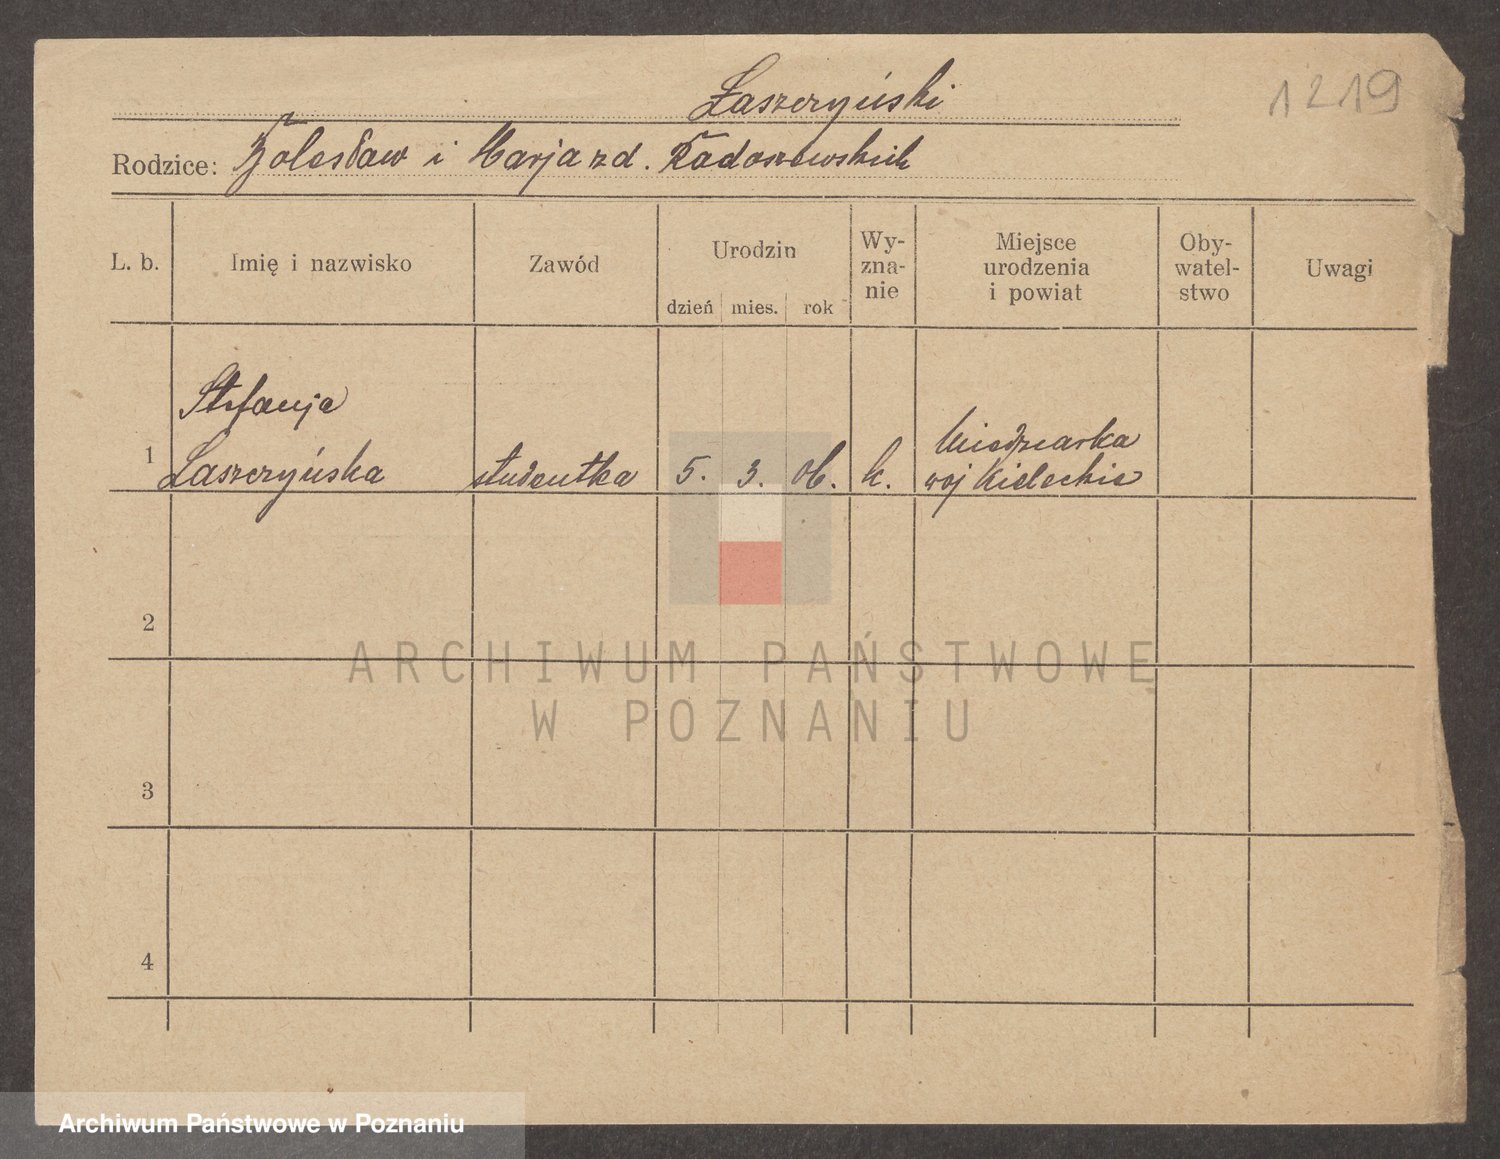 Łaszczyński
1219
Rodzice: Bolesław i Marja z d. Radoszewskich
L. b. Imię i nazwisko Zawód Urodzin dzień mies. rok Wy-zna-nie Miejsce urodzenia i powiat Oby-watel-stwo Uwagi
Stefanja Miedzianka
1 Łaszczyńska studentka 5. 3. 06. k. woj Kieleckie
2
3
4
ARCHIWUM PAŃSTWOWE
W POZNANIU
Archiwum Państwowe w Poznaniu